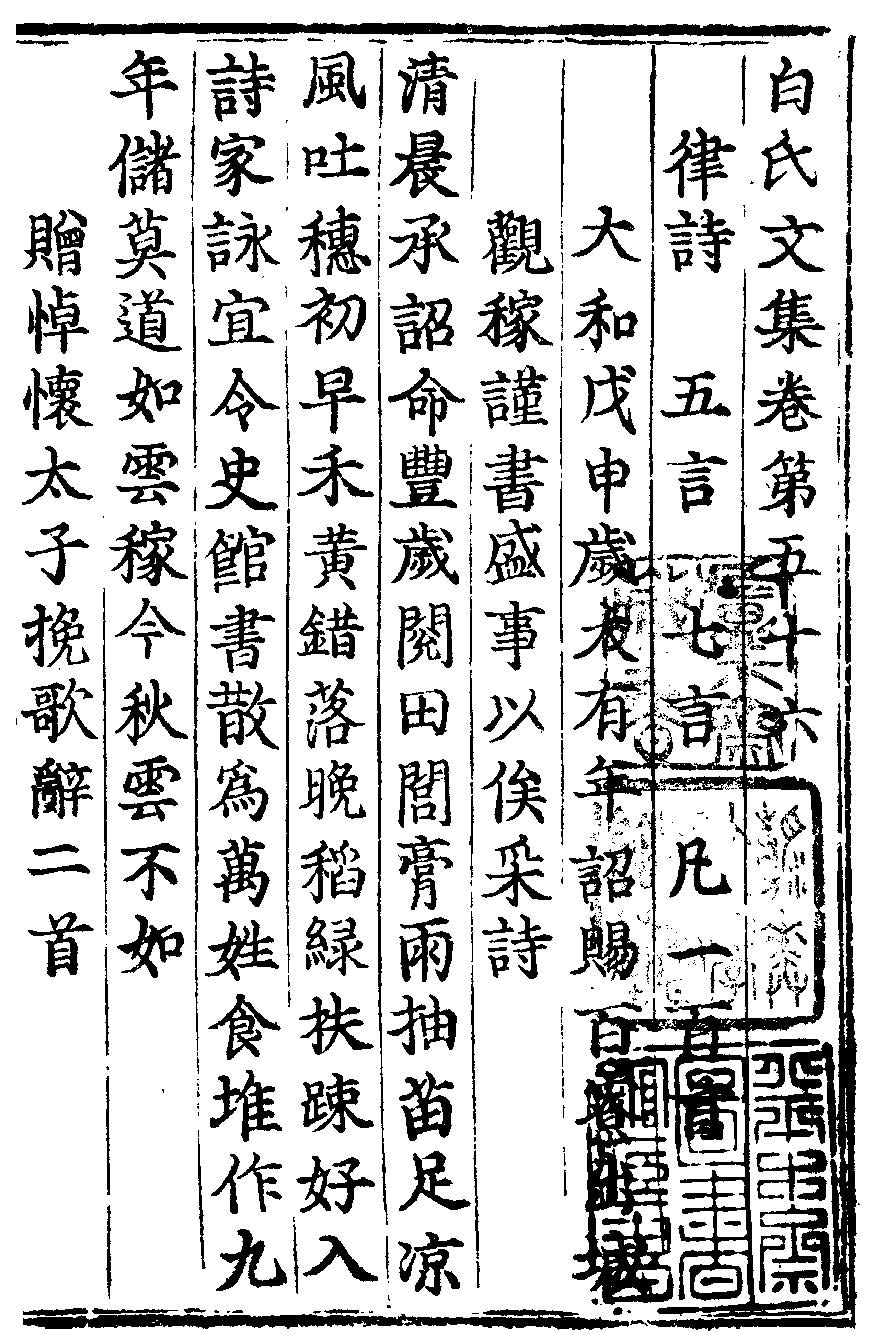 白氏文集卷第五十六
律詩 五言 七言 凡一百首
大和戊申歲大有年詔賜百寮出城
觀稼謹書盛事以俟采詩
清晨承詔命豐歲閱田閭膏雨抽苗足凉
風吐穗初早禾黃錯落晚稻綠扶踈好入
詩家詠宜令史館書散爲萬姓食堆作九
年儲莫道如雲稼今秋雲不如
贈悼懷太子挽歌辭二首